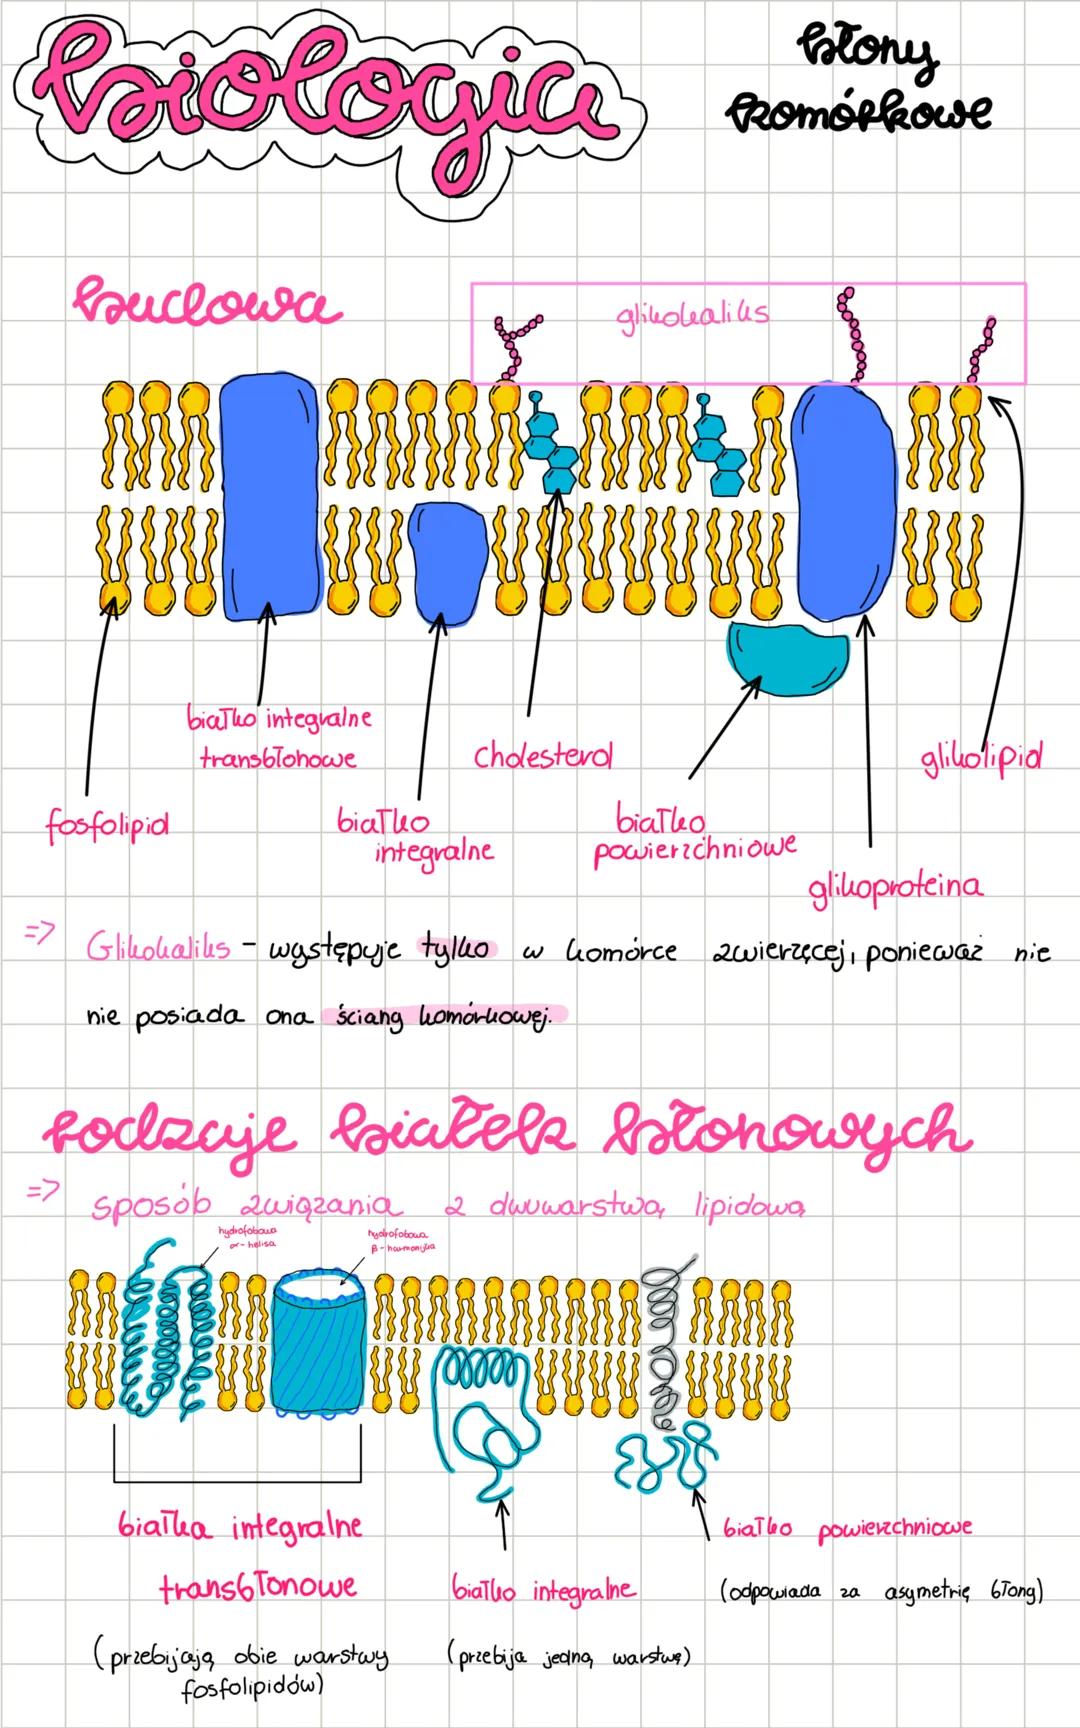 biologia
błony
komórkowe
budowa
glikokaliks
białko integralne
transbłonowe
cholesterol
glikolipid
fosfolipid
białko
integralne
białko
powierzchniowe
glikoproteina
=> Glikokaliks - występuje tylko w komórce zwierzęcej, ponieważ nie
nie posiada ona ściany komórkowej.
rodzaje białek błonowych
=> sposób związania z dwuwarstwą lipidową
hydrofobowa
α-helisa
hydrofobowa
β-harmonijka
białka integralne
transbłonowe
(przebijają obie warstwy
fosfolipidów)
białko integralne
(przebija jedną warstwę)
białko powierzchniowe
(odpowiada za asymetrię błony)